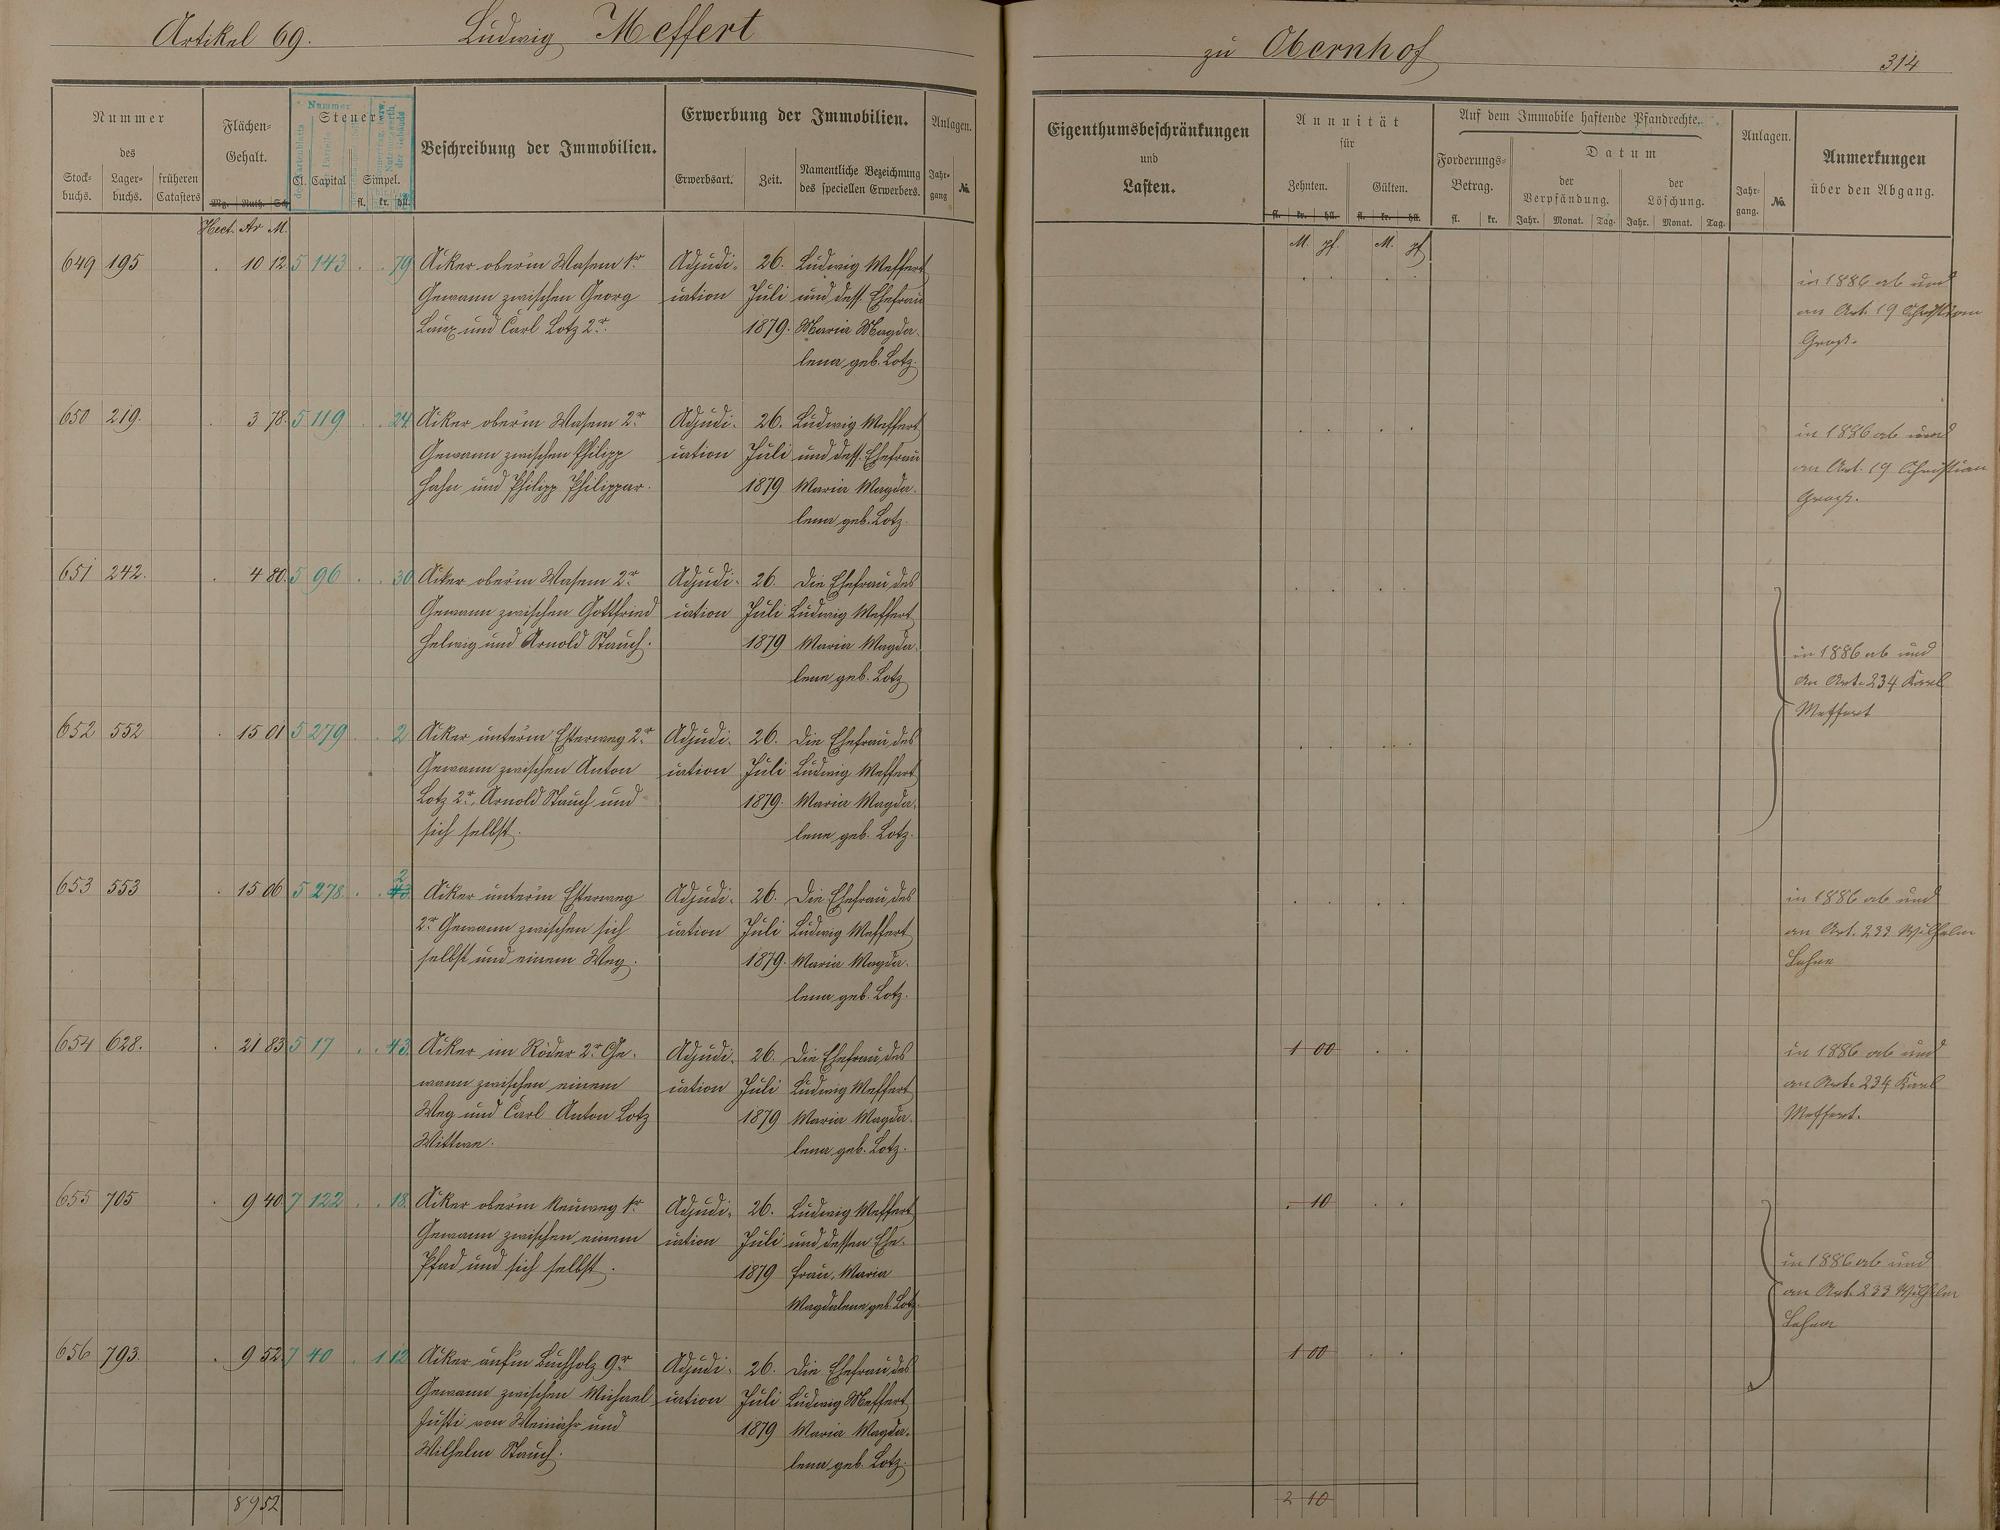 Artikel 69. Ludwig Meffert
zu Obernhof
314
Nummer
des
Stock-
buchs.
Lager-
buchs.
früheren
Catasters
Flächen-
Gehalt.
Mg. Ruth. Sch.
Hect. Ar M.
Nummer
Steuer
Cl. Capital Simpel.
fl. kr. hll.
Beschreibung der Immobilien.
Erwerbung der Immobilien.
Erwerbsart. Zeit.
Namentliche Bezeichnung
des speciellen Erwerbers.
Anlagen.
Jahr-
gang
No.
Eigenthumsbeschränkungen
und
Lasten.
Annuität
für
Zehnten. Gülten.
fl. kr. hll. fl. kr. hll.
M. pf. M. pf.
Auf dem Immobile haftende Pfandrechte.
Forderungs-
Betrag.
fl. kr.
Datum
der
Verpfändung.
der
Löschung.
Jahr. Monat. Tag. Jahr. Monat. Tag.
Anlagen.
Jahr-
gang.
No.
Anmerkungen
über den Abgang.
649 195 . 10 12 5 143 . . 79 Acker ober'm Wasem 1r Adjudi- 26. Ludwig Meffert
Gewann zwischen Georg cation Juli und dess. Ehefrau
Laux und Carl Lotz 2r. 1879. Maria Magda-
lena geb. Lotz.
in 1886 ab und
an Art. 19 Christian
Groß.
650 219. . 3 78. 5 119 . . 24 Acker ober'm Wasem 2r Adjudi- 26. Ludwig Meffert
Gewann zwischen Philipp cation Juli und dess. Ehefrau
Hahn und Philipp Philippar. 1879 Maria Magda-
lena geb. Lotz.
in 1886 ab und
an Art. 19 Christian
Groß.
651 242. . 4 80. 5 96 . . 30 Acker ober'm Wasem 2r Adjudi- 26. Die Ehefrau des
Gewann zwischen Gottfried cation Juli Ludwig Meffert
Helwig und Arnold Stauch. 1879 Maria Magda-
lena geb. Lotz
in 1886 ab und
an Art. 234 Karl
Meffert
652 552 . 15 01 5 279 . . 2 Acker unter'm Esterweg 2r Adjudi- 26. Die Ehefrau des
Gewann zwischen Anton cation Juli Ludwig Meffert
Lotz 2r, Arnold Stauch und 1879. Maria Magda-
sich selbst. lena geb. Lotz.
2
653 553 . 15 06 5 278 . . 43. Acker unter'm Esterweg Adjudi- 26. Die Ehefrau des
2r Gewann zwischen sich cation Juli Ludwig Meffert
selbst und einem Weg. 1879. Maria Magda-
lena geb. Lotz.
in 1886 ab und
an Art. 233 Wilhelm
654 628. . 21 83 5 17 . . 43 Acker im Röder 2r Ge- Adjudi- 26. Die Ehefrau des
wann zwischen einem cation Juli Ludwig Meffert
Weg und Carl Anton Lotz 1879 Maria Magda-
Wittwe. lena geb. Lotz.
1 00 . .
in 1886 ab und
an Art. 234 Karl
Meffert.
655 705 . 9 40 7 122 . . 18. Acker ober'm Neuweg 1r Adjudi- 26. Ludwig Meffert
Gewann zwischen einem cation Juli und dessen Ehe-
Pfad und sich selbst. 1879 frau, Maria
Magdalena geb. Lotz
. 10 . .
in 1886 ab und
an Art. 233 Wilhelm
656 793. . 9 52 7 40 . 1 12 Acker auf'm Buchholz 9r Adjudi- 26. Die Ehefrau des
Gewann zwischen Michael cation Juli Ludwig Meffert
Justi von Weinähr und 1879 Maria Magda-
Wilhelm Stauch. lena geb. Lotz.
1 00 . .
89 52
2 10